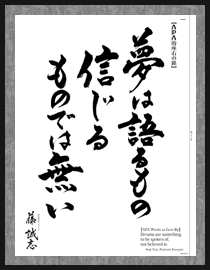 【APA的座右の銘】
夢は語るもの
信じる
ものでは無い
藤 誠志
【APA Words to Live By】
Dreams are something
to be spoken of,
not believed in